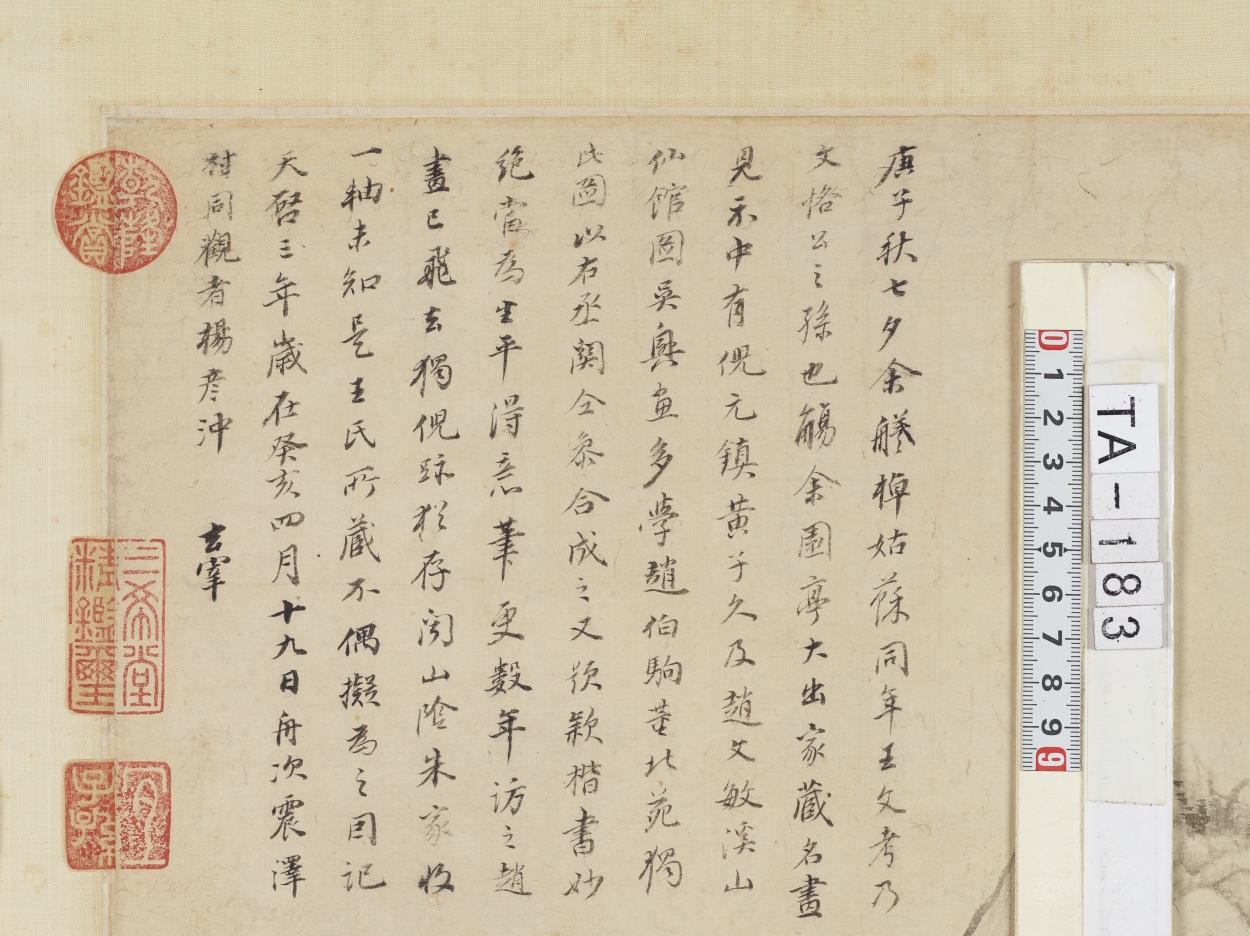 庚子秋七夕余艤棹姑蘇同年王文考乃
文恪公之孫也觴余園亭大出家藏名畫
見示中有倪元鎮黄子久及趙文敏溪山
仙館圖吳興畫多學趙伯駒董北苑獨
此圖以右丞関仝叅合成之又題款楷書妙
絶當爲生平得意筆更數年訪之趙
畫已飛去獨倪跡猶存閱山陰朱家收
一軸未知是王氏所藏不偶擬為之因記
天啓三年歲在癸亥四月十九日舟次震澤
對同觀者楊彥沖 玄宰
三希堂
精鑑璽
宜
子孫
0 1 2 3 4 5 6 7 8 9
TA-183